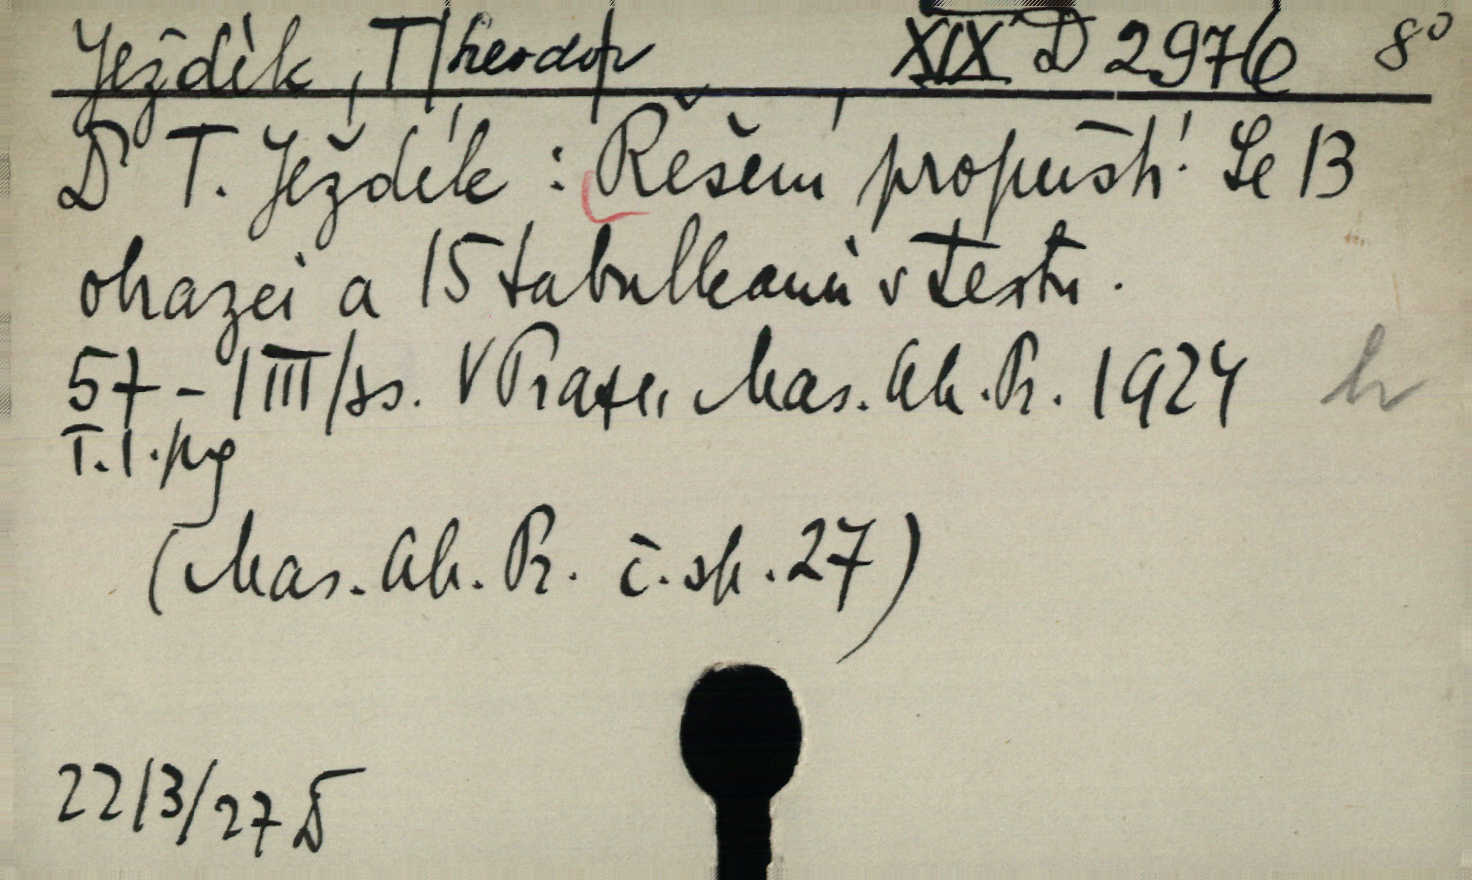 Ježdík, T/heodor XIX D 2976 8°
Dr T. Ježdík: Řešení propustí. Se 13
obrazci a 15 tabulkami v textu.
57 - /III/ss. V Praze, Mas. Ak. Pr. 1924
T.1.
(Mas. Ak. Pr. č. sp. 27)
22/3/27 D